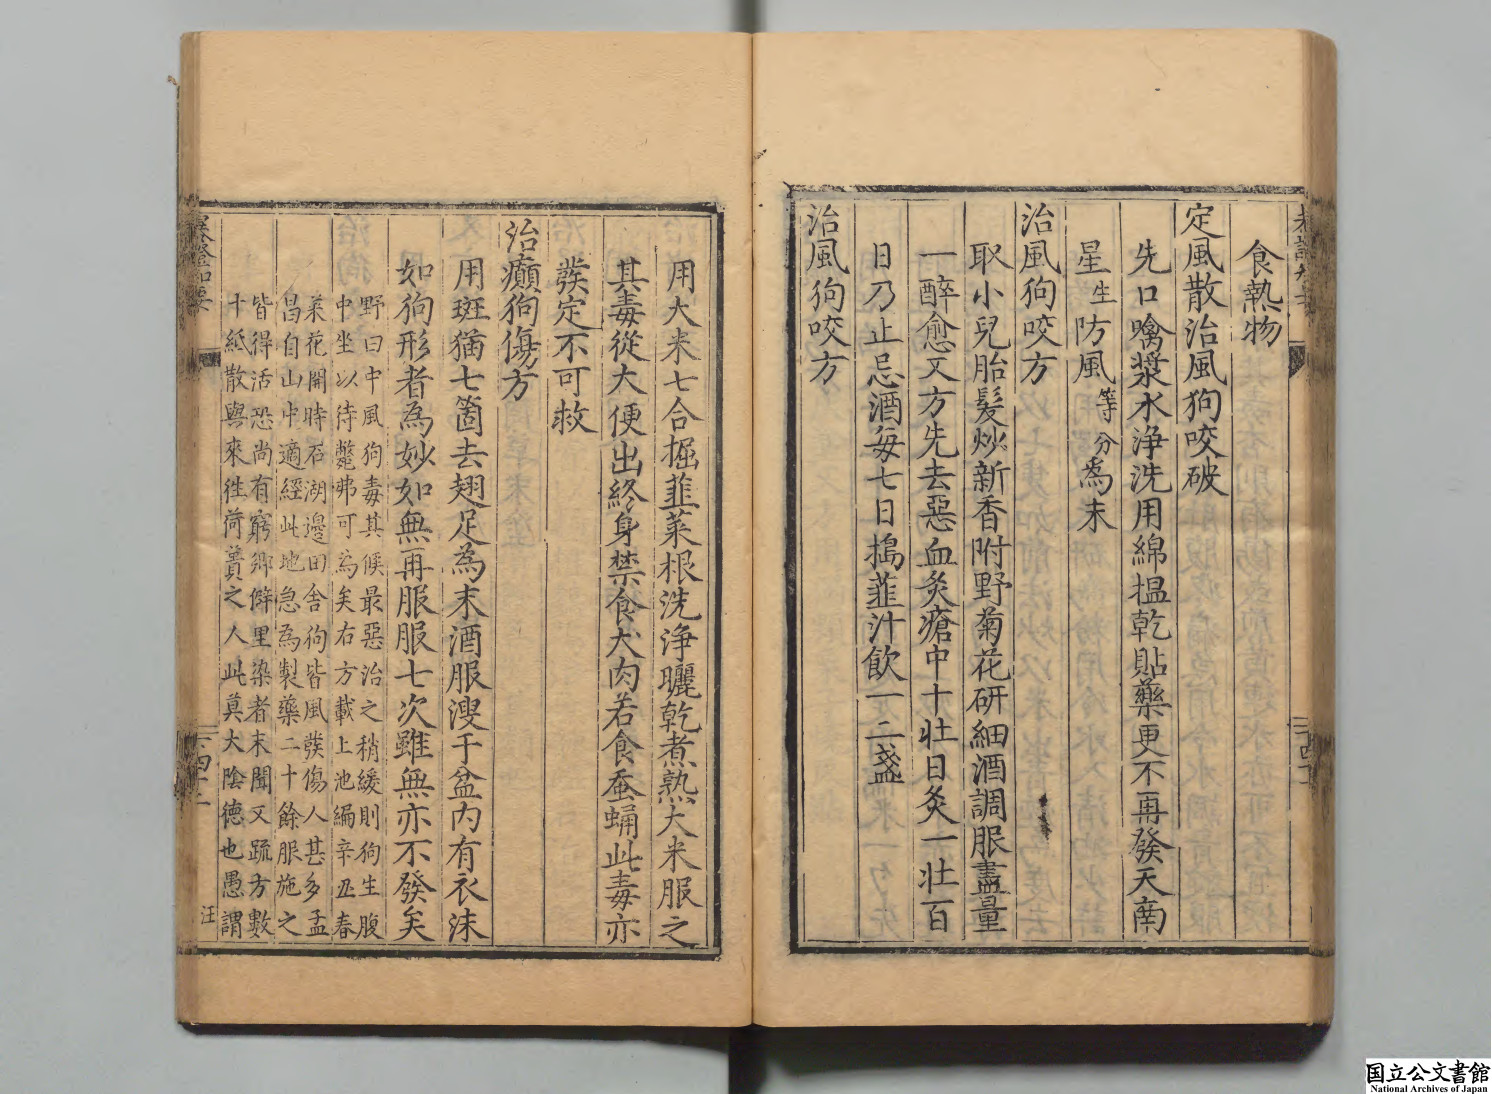 食熱物
定風散治風狗咬破
先口噙漿水淨洗用綿搵乾貼藥更不再發天南
星生防風等分爲末
治風狗咬方
取小兒胎髮炒新香附野菊花研細酒調服盡量
一醉愈又方先去惡血灸瘡中十壯日灸一壯百
日乃止忌酒每七日搗韮汁飲一二盞
治風狗咬方
用大米七合掘韮菜根洗淨曬乾煮熟大米服之
其毒從大便出終身禁食犬肉若食蚕蛹此毒亦
發定不可救
治癲狗傷方
用斑猫七箇去翅足為末酒服溲于盆内有衣沫
如狗形者為妙如無再服服七次雖無亦不發矣
野曰中風狗毒其候最惡治之稍緩則狗生腹
中坐以待斃弗可為矣右方載上池編辛丑春
菜花開時石湖邊田舍狗皆風發傷人甚多孟
昌自山中適經此地急為製藥二十餘服施之
皆得活恐尚有窮鄉僻里染者未聞又疏方數
十紙散與來徃荷蕢之人此眞大陰德也愚謂
汪
国立公文書館
National Archives of Japan